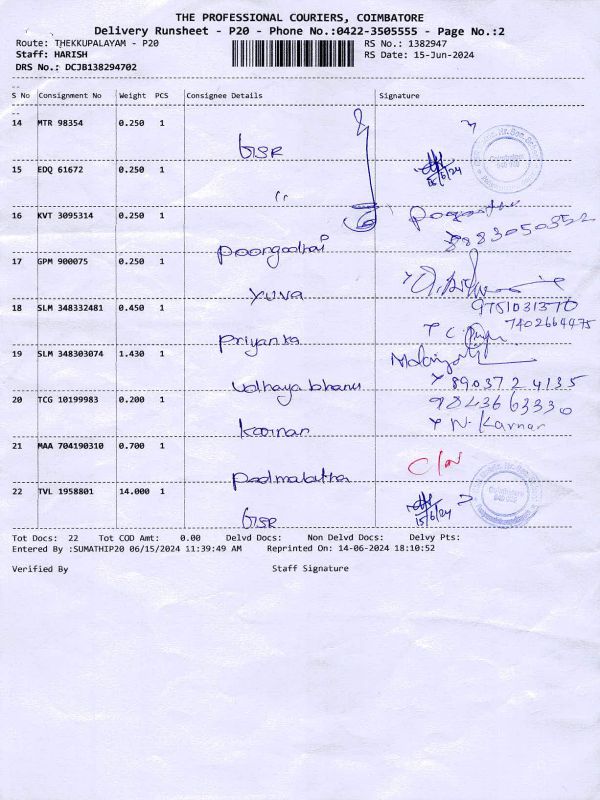 THE PROFESSIONAL COURIERS, COIMBATORE
Delivery Runsheet - P20 - Phone No.:0422-3505555 - Page No.:2
Route: THEKKUPALAYAM - P20 RS No.: 1382947
Staff: HARISH RS Date: 15-Jun-2024
DRS No.: DCJB138294702
S No Consignment No Weight PCS Consignee Details Signature
14 MTR 98354 0.250 1
GSR
15 EDQ 61672 0.250 1
15/6/24
"
16 KVT 3095314 0.250 1
Poongodhai
17 GPM 900075 0.250 1
Yuva
9751031370
18 SLM 348332481 0.450 1
7402664475
Priyanka
19 SLM 348303074 1.430 1
Udhaya bhanu 8903724135
20 TCG 10199983 0.200 1 9843663330
Karnan N. Karnar
21 MAA 704190310 0.700 1
Padmalatha
22 TVL 1958801 14.000 1
GSR 15/6/24
Tot Docs: 22 Tot COD Amt: 0.00 Delvd Docs: Non Delvd Docs: Delvy Pts:
Entered By :SUMATHIP20 06/15/2024 11:39:49 AM Reprinted On: 14-06-2024 18:10:52
Verified By Staff Signature